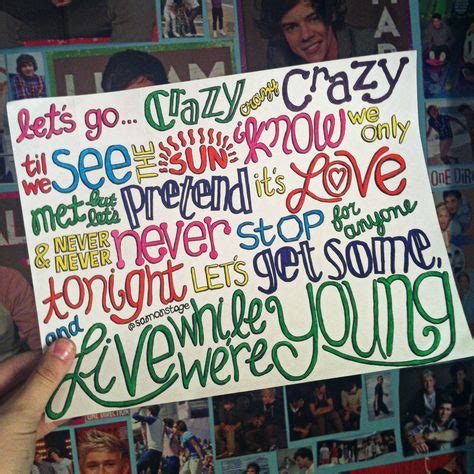 let's go... Crazy crazy Crazy
til we See THE SUN Know we only
met but let's Pretend it's Love
& NEVER NEVER never STOP for anyone
tonight LET'S get some,
and Live while we're Young
@samonstage
ONE DIR
ONE DIRECTION